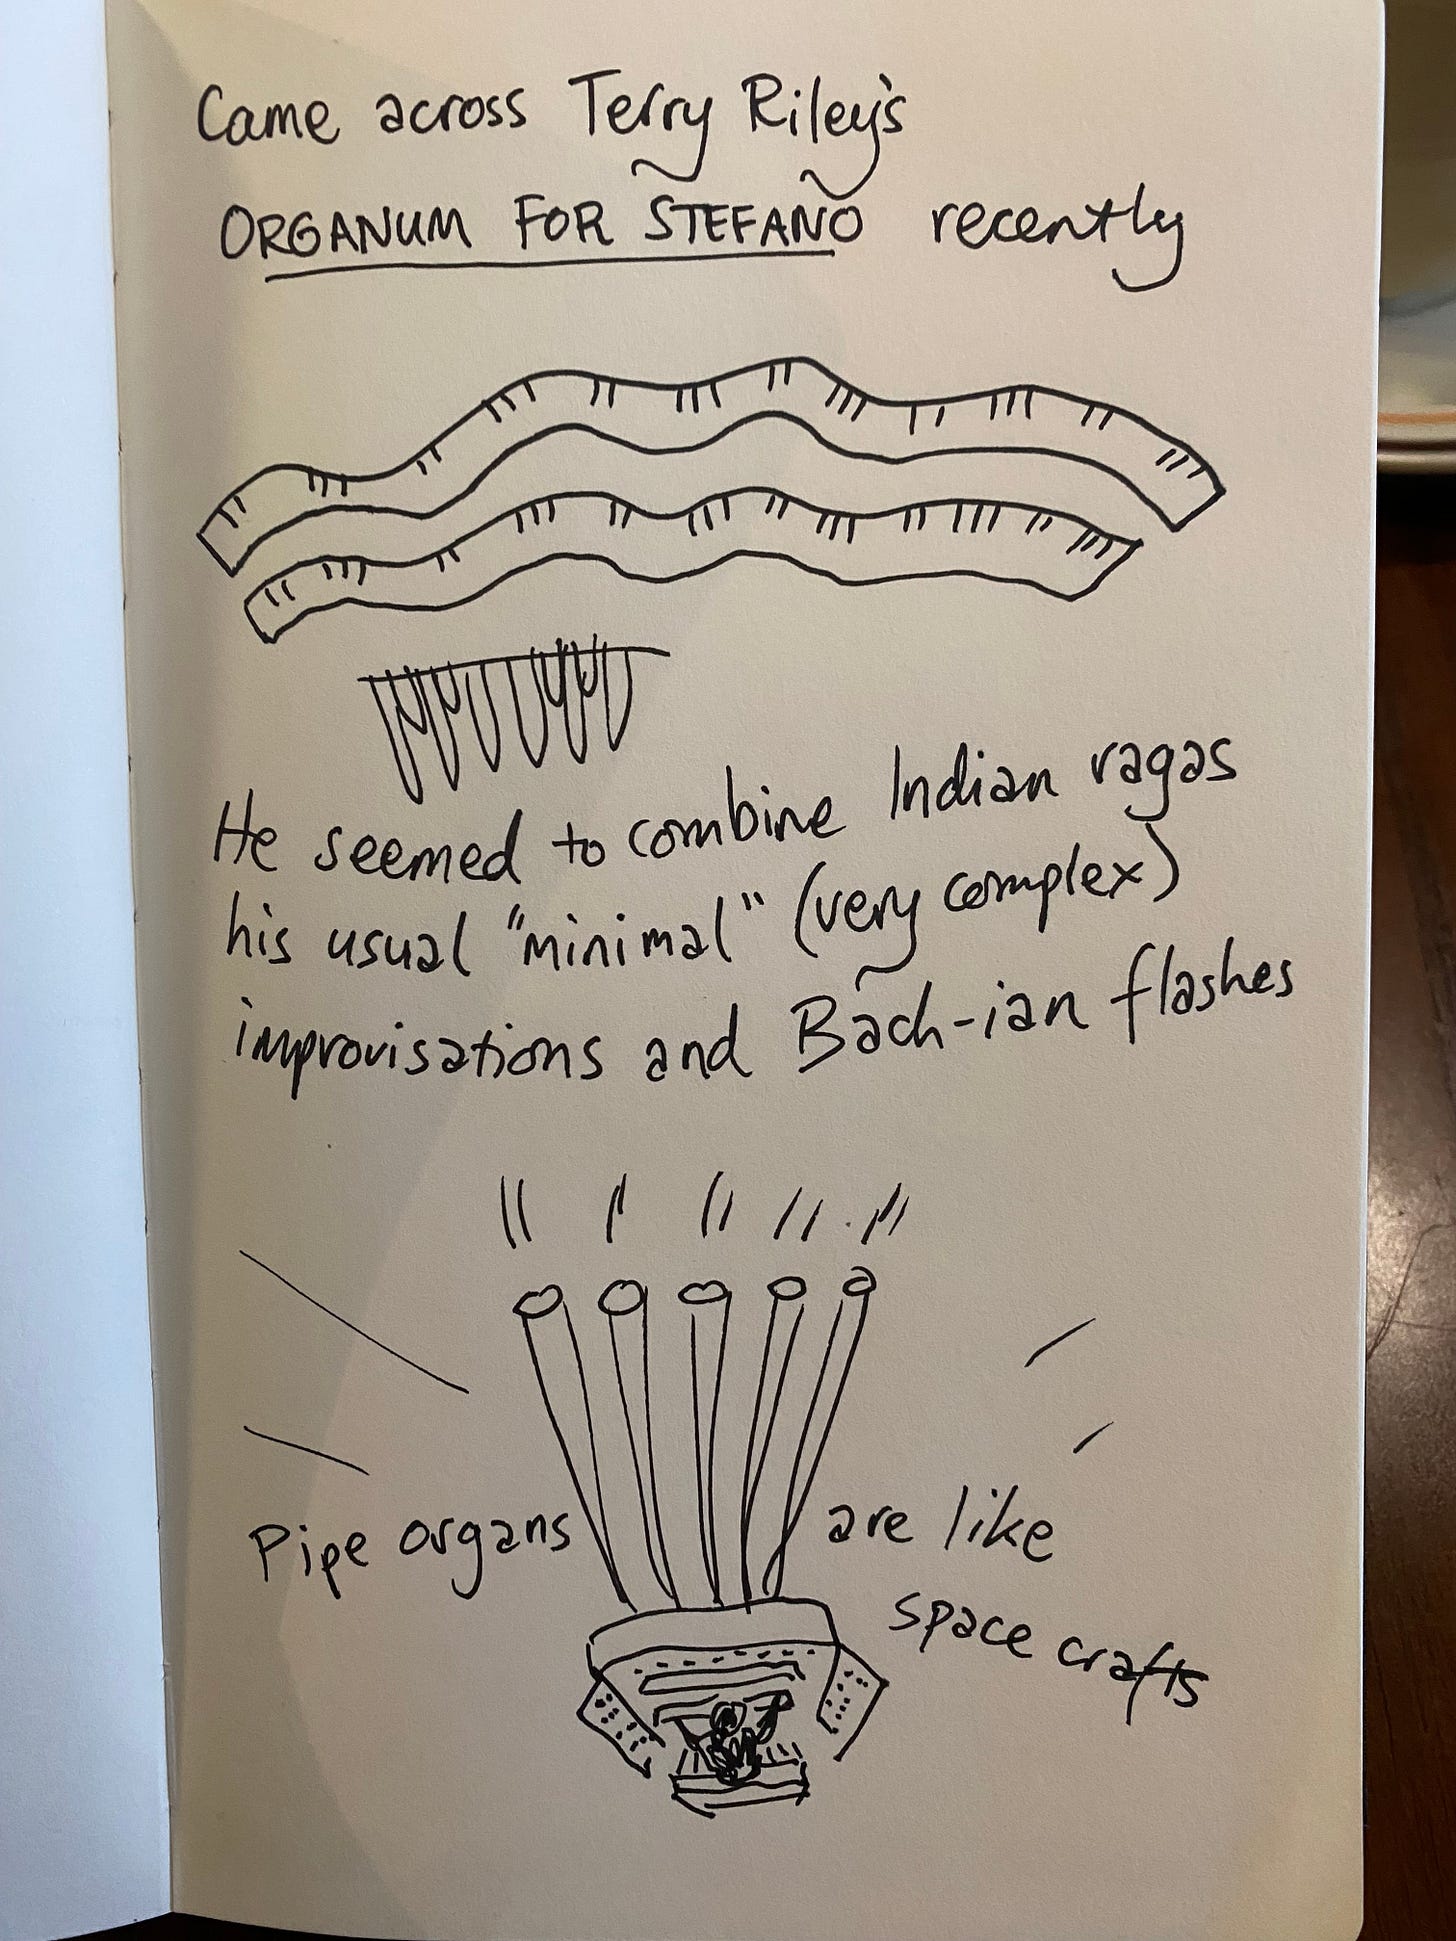 Came across Terry Riley's
ORGANUM FOR STEFANO recently
He seemed to combine Indian ragas
his usual "minimal" (very complex)
improvisations and Bach-ian flashes
Pipe organs are like
space crafts